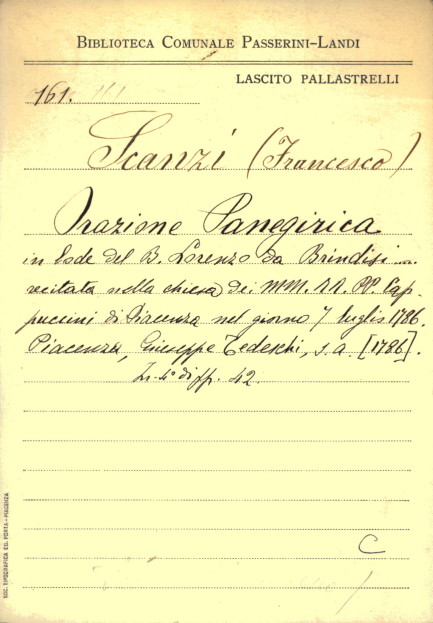 BIBLIOTECA COMUNALE PASSERINI-LANDI
LASCITO PALLASTRELLI
161.
Scanzi (Francesco)
Orazione Panegirica
in lode del B. Lorenzo da Brindisi
recitata nella chiesa dei MM. RR. PP. Cap-
puccini di Piacenza nel giorno 7 luglio 1786.
Piacenza, Giuseppe Tedeschi, s. a. [1786].
In-4° di pp. 42.
C
SOC. TIPOGRAFICA ED. PORTA-PIACENZA